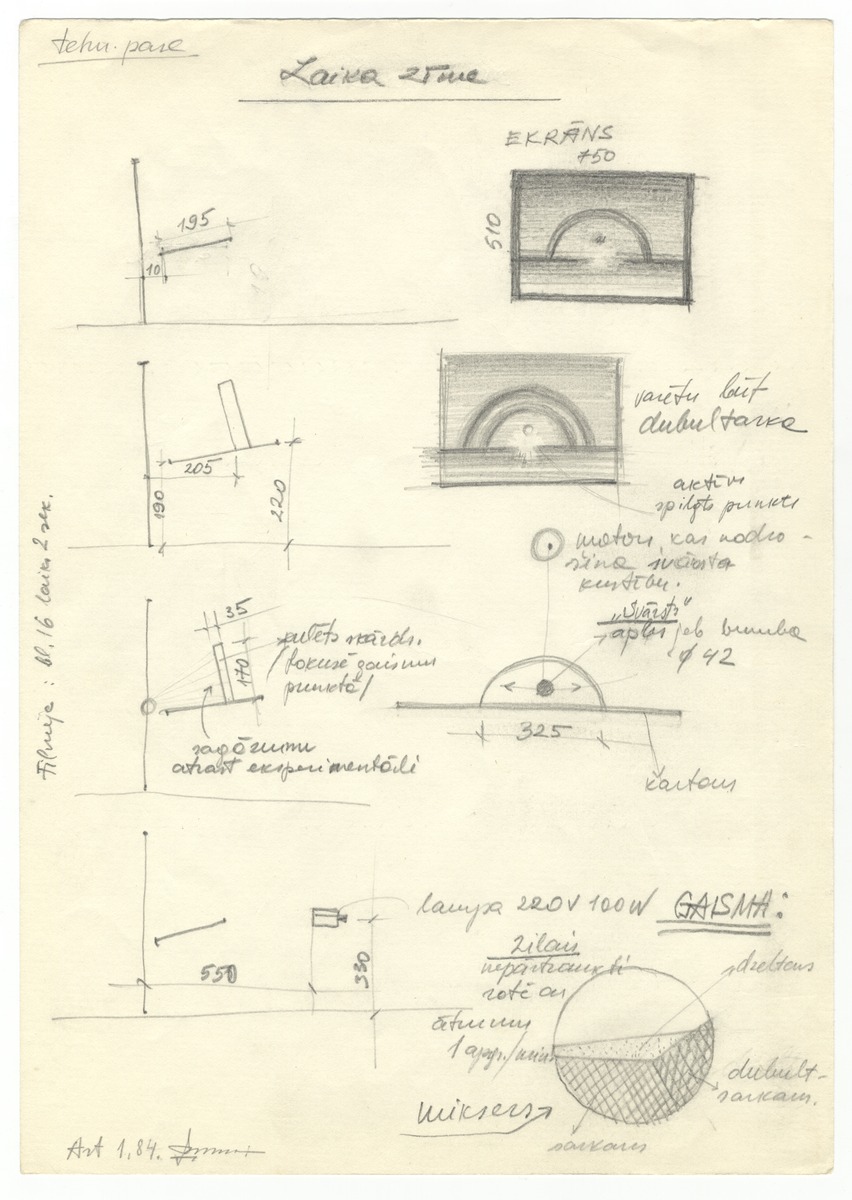 tehn. pase
Laika zīme
EKRĀNS
750
510
195
10
varētu būt
dubultarka
205
190
220
aktīvs
spilgts punkts
motors, kas nodro-
šina svārsta
kustību.
Filmiņa: bl. 16 laiks 2 sek.
35
170
skārds.
/fokusē gaismu
punktā/
sagāzumu
atrast eksperimentāli
„Svārsts"
aplis jeb bumba
ϕ 42
325
kartons
lampa 220V 100W GAISMA:
550
330
zilais
nepārtraukti
rotē ar
ātrumu
1 apgr./min.
dzeltens
dubult-
sarkans.
mikseris
sarkans
Art 1.84.